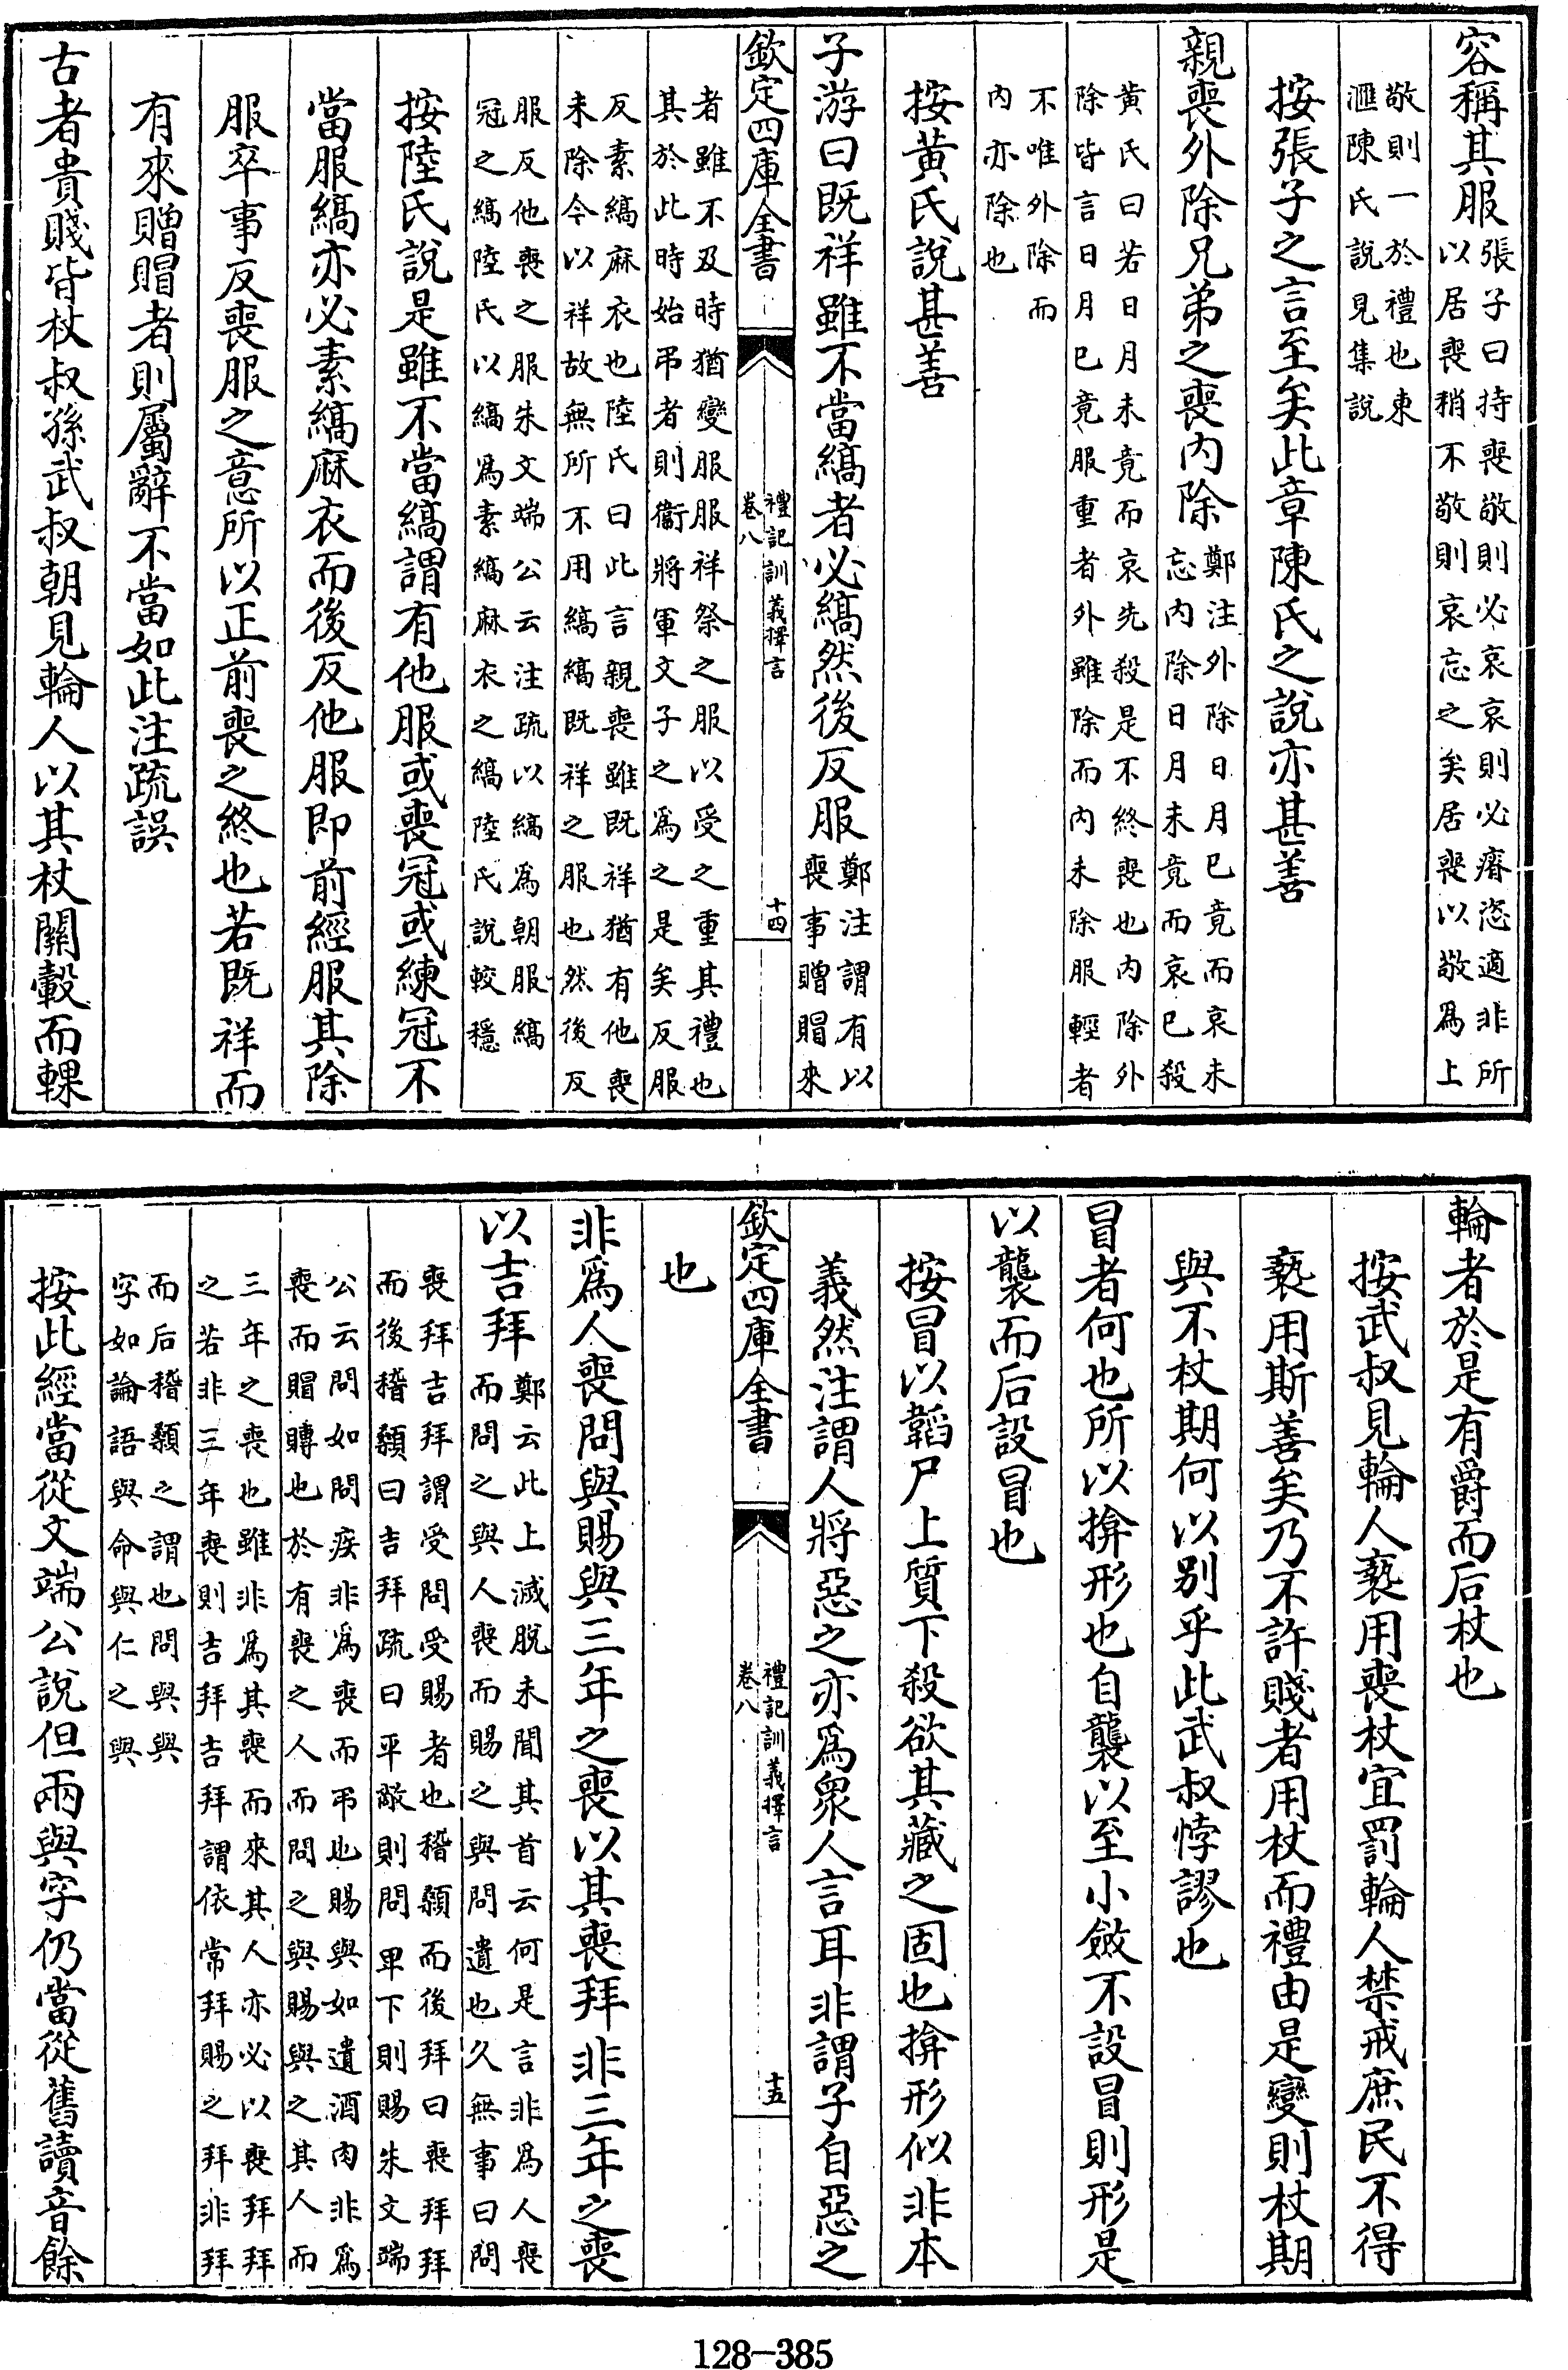 容稱其服張子曰持喪敬則必哀哀則必瘠恣適非所
以居喪稍不敬則哀忘之矣居喪以敬為上
敬則一於禮也東
滙陳氏說見集說
按張子之言至矣此章陳氏之說亦甚善
親喪外除兄弟之喪内除鄭注外除日月已竟而哀未
忘内除日月未竟而哀已殺
黃氏曰若日月未竟而哀先殺是不終喪也内除外
除皆言日月已竟服重者外雖除而内未除服輕者
不唯外除而
内亦除也
按黃氏說甚善
子游曰既祥雖不當縞者必縞然後反服鄭注謂有以
喪事贈賵來
者雖不及時猶變服服祥祭之服以受之重其禮也
其於此時始弔者則衞將軍文子之為之是矣反服
反素縞麻衣也陸氏曰此言親喪雖既祥猶有他喪
未除今以祥故無所不用縞縞既祥之服也然後反
服反他喪之服朱文端公云注疏以縞為朝服縞
冠之縞陸氏以縞為素縞麻衣之縞陸氏說較穩
按陸氏說是雖不當縞謂有他服或喪冠或練冠不
當服縞亦必素縞麻衣而後反他服即前經服其除
服卒事反喪服之意所以正前喪之終也若既祥而
有來贈賵者則屬辭不當如此注疏誤
古者貴賤皆杖叔孫武叔朝見輪人以其杖關轂而輠
欽定四庫全書
禮記訓義擇言
卷八
十四
輪者於是有爵而后杖也
按武叔見輪人褻用喪杖宜罰輪人禁戒庶民不得
褻用斯善矣乃不許賤者用杖而禮由是變則杖期
與不杖期何以别乎此武叔悖謬也
冒者何也所以揜形也自襲以至小斂不設冒則形是
以襲而后設冒也
按冒以韜尸上質下殺欲其藏之固也揜形似非本
義然注謂人將惡之亦為衆人言耳非謂子自惡之
也
非為人喪問與賜與三年之喪以其喪拜非三年之喪
以吉拜鄭云此上滅脫未聞其首云何是言非為人喪
而問之與人喪而賜之與問遺也久無事曰問
喪拜吉拜謂受問受賜者也稽顙而後拜曰喪拜拜
而後稽顙曰吉拜疏曰平敵則問卑下則賜朱文端
公云問如問疾非為喪而弔也賜與如遺酒肉非為
喪而賵賻也於有喪之人而問之與賜與之其人而
三年之喪也雖非為其喪而來其人亦必以喪拜拜
之若非三年喪則吉拜吉拜謂依常拜賜之拜非拜
而后稽顙之謂也問與與
字如論語與命與仁之與
按此經當從文端公說但兩與字仍當從舊讀音餘
欽定四庫全書
禮記訓義擇言
卷八
十五
128-385